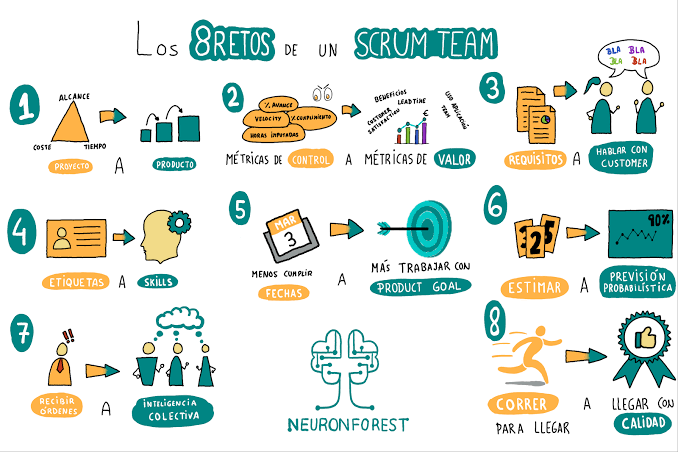 Los 8 RETOS DE UN SCRUM TEAM
1
ALCANCE
COSTE
TIEMPO
PROYECTO A PRODUCTO
2
% AVANCE
VELOCITY
% CUMPLIMIENTO
HORAS IMPUTADAS
BENEFICIOS
LEADTIME
CUSTOMER SATISFACTION
USO APLICACIÓN
TEAM
€
MÉTRICAS DE CONTROL A MÉTRICAS DE VALOR
3
BLA BLA
BLA BLA
REQUISITOS A HABLAR CON
CUSTOMER
4
ETIQUETAS A SKILLS
5
MAR
3
MENOS CUMPLIR
FECHAS
A
MÁS TRABAJAR CON
PRODUCT GOAL
6
3 2 5
90%
ESTIMAR A PREVISIÓN
PROBABILÍSTICA
7
!!
RECIBIR
ÓRDENES
A
INTELIGENCIA
COLECTIVA
NEURONFOREST
8
CORRER
PARA LLEGAR
A
LLEGAR CON
CALIDAD